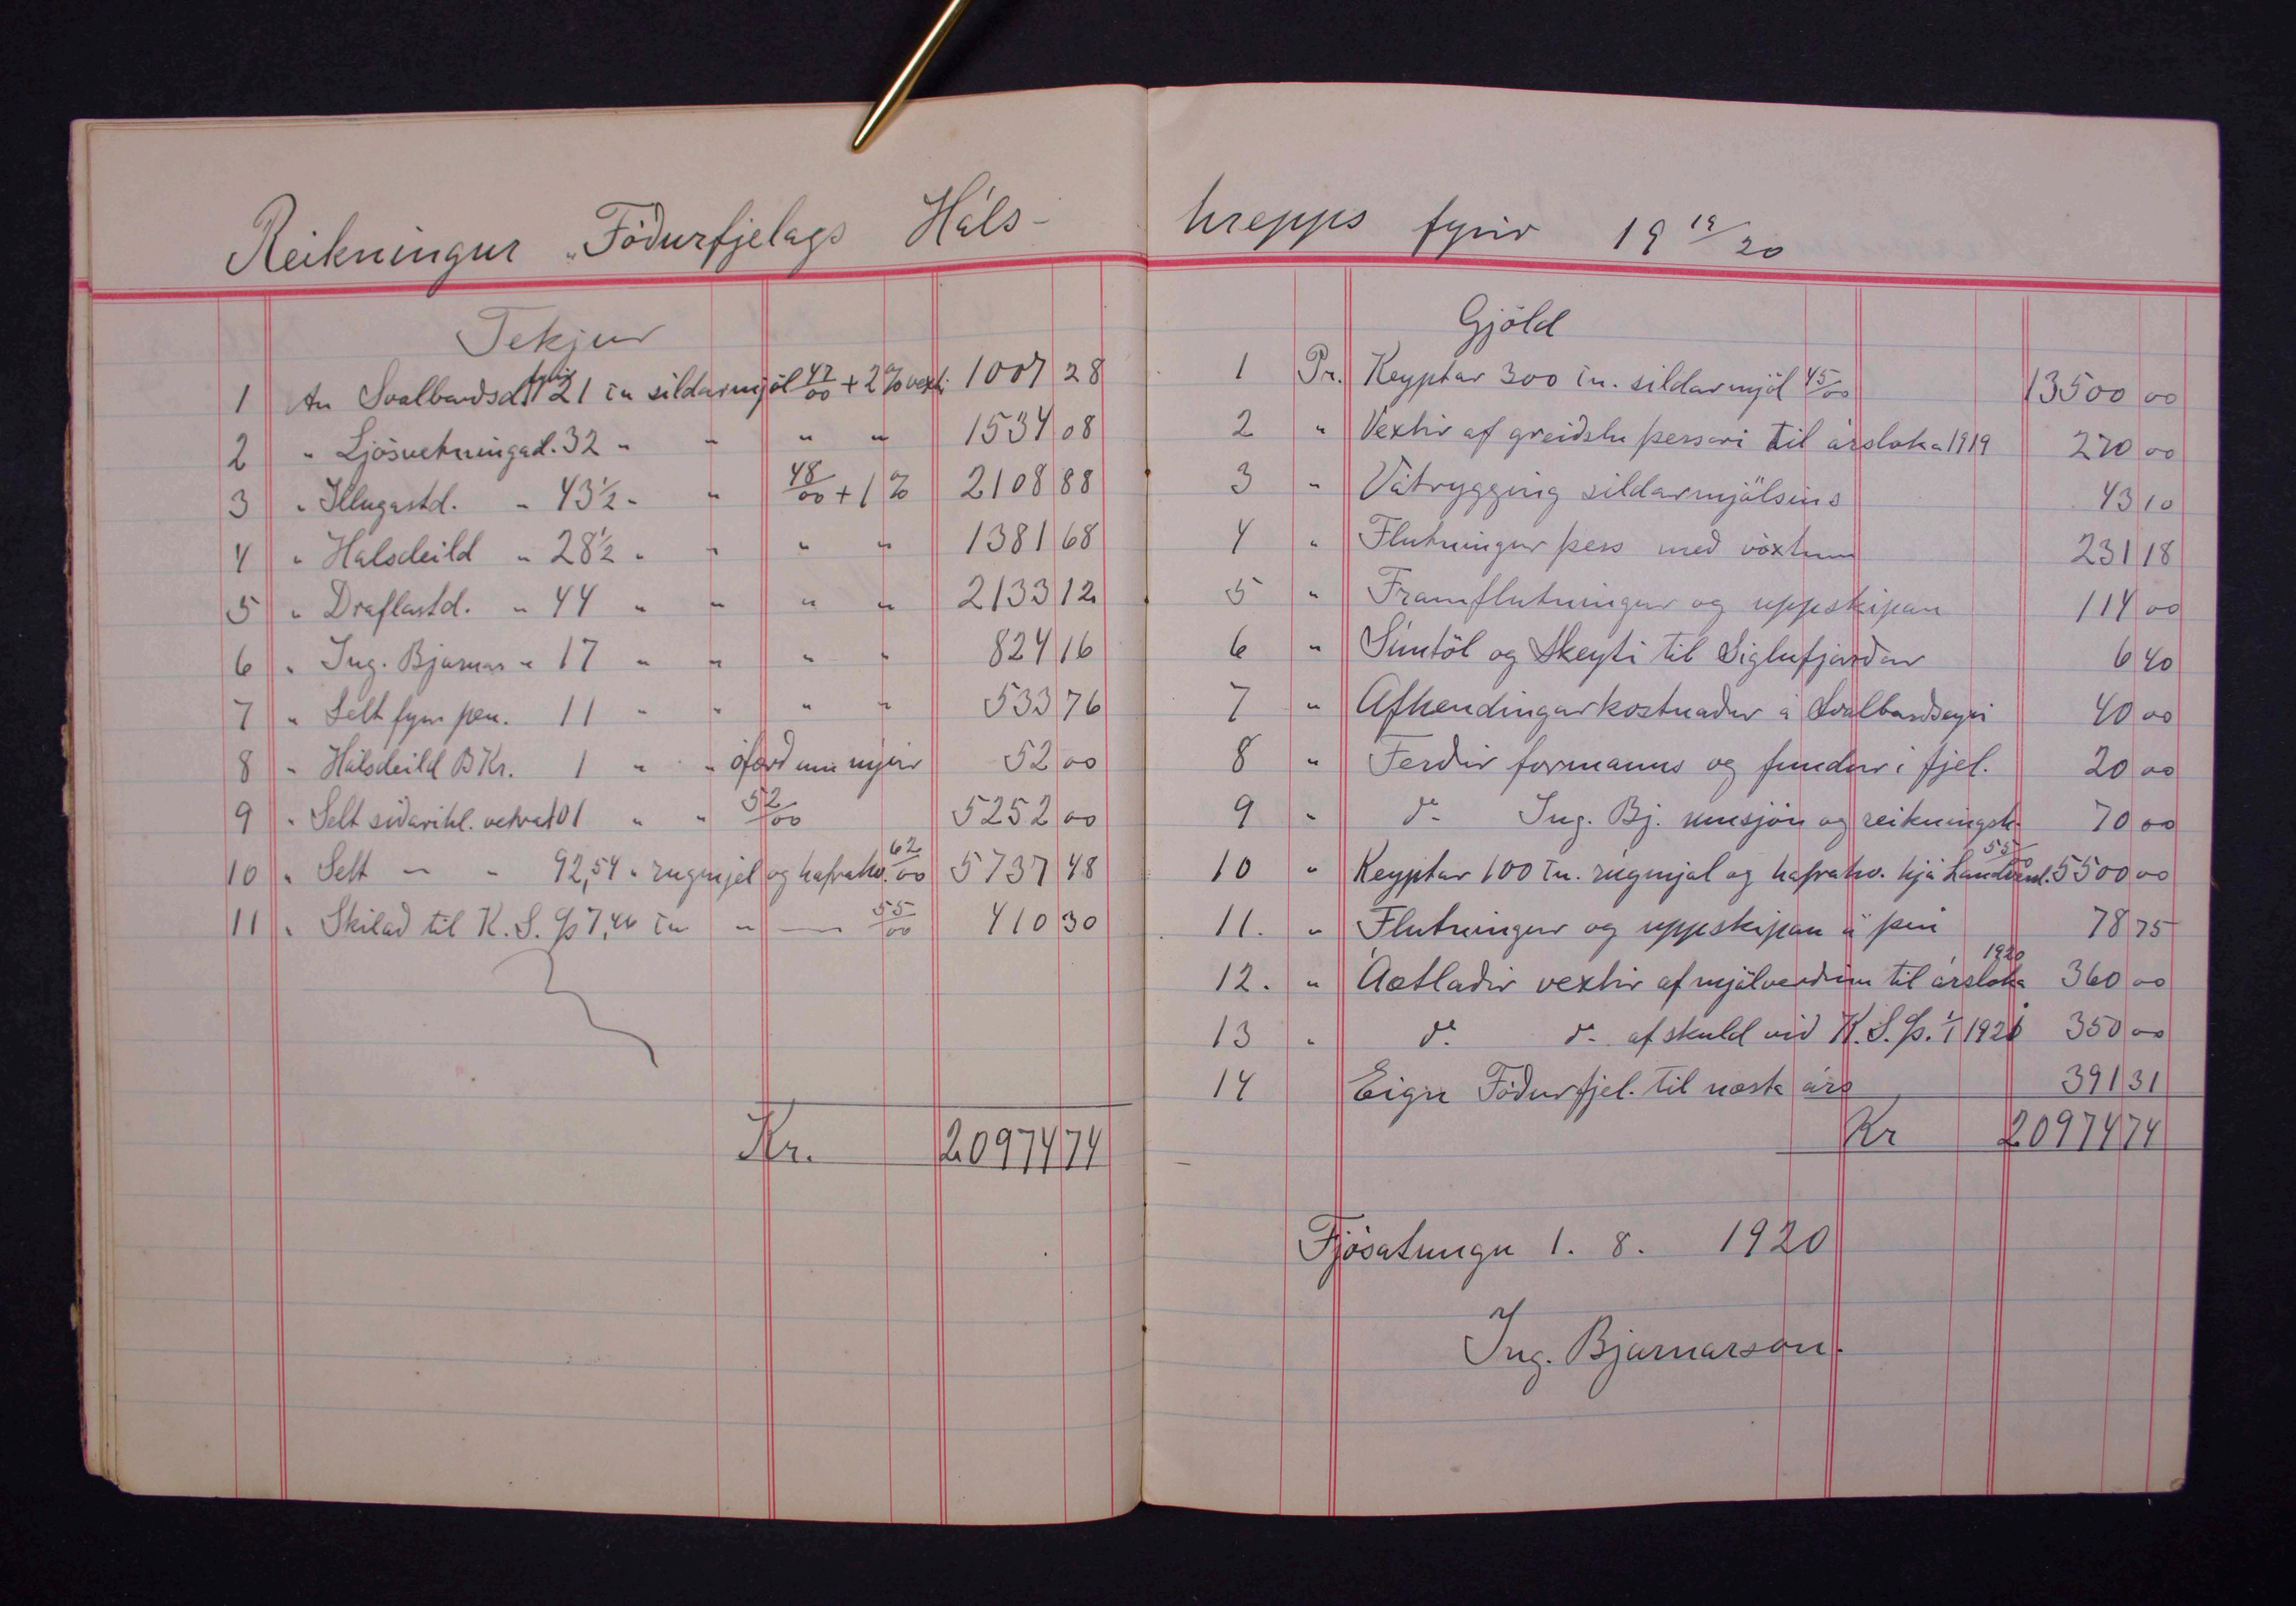 Reikningur „Fóðurfjelags Háls-
Tekjur
1 An Svalbardsd. fyrir 21 tn sildarmjöl 47/00 + 2% vexti 1007 28
2 " Ljósvetningad. 32 " " " " 1534 08
3 " Illugastd. " 43½ " " 48/00 + 1% 2108 88
4 " Halsdeild " 28½ " " " " 1381 68
5 " Draflastd. " 44 " " " " 2133 12
6 " Ing. Bjarnar " 17 " " " " 824 16
7 " Selt fyrir pen. 11 " " " " 533 76
8 " Hálsdeild B Kr. 1 " " 52 00
9 " Selt siðarihl. vetrar 101 " " 52/00 5252 00
10 " Selt " " 92,54 " rugmjel og hafrahv. 62/00 5737 48
11 " Skilad til K. S. Þ 7,46 tn " — 55/00 410 30
Kr. 20974 74
hrepps fyrir 19 19/20
Gjöld
1 Pr. Keyptar 300 tn. sildarmjöl 45/00 13500 00
2 " Vextir af greiðslu þessari til ársloka 1919 270 00
3 " Vátrygging sildarmjölsins 43 10
4 " Flutningur þess með vöxtum 231 18
5 " Framflutningur og uppskipan 114 00
6 " Símtöl og Skeyti til Siglufjarðar 6 40
7 " Afhendingarkostnaður á Svalbardseyri 40 00
8 " Ferðir formanns og fundur i fjel. 20 00
9 " do Ing. Bj. umsjón og reikningsh. 70 00
10 " Keyptar 100 tn. rúgmjal og hafrahv. hjá Landv. 55/00 5500 00
11. " Flutningur og uppskipan á því 78 75
12. " Áætlaðir vextir af mjölverðinu til ársloka 1920 360 00
13 " do do af skuld við K. S. Þ. 1/1 1920 350 00
14 Eign Fóðurfjel. til næsta árs 391 31
Kr 20974 74
Fjósatungu 1. 8. 1920
Ing. Bjarnarson.